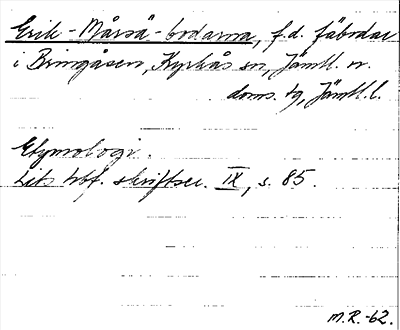 Erik-Mårsä-bodarna, f.d. fäbodar
i Bringåsen, Kyrkås sn, Jämtl. n.
doms. tg, Jämtl. l.
Etymologi.
Lits hbf. skriftser. IX, s. 85.
M.R.-62.